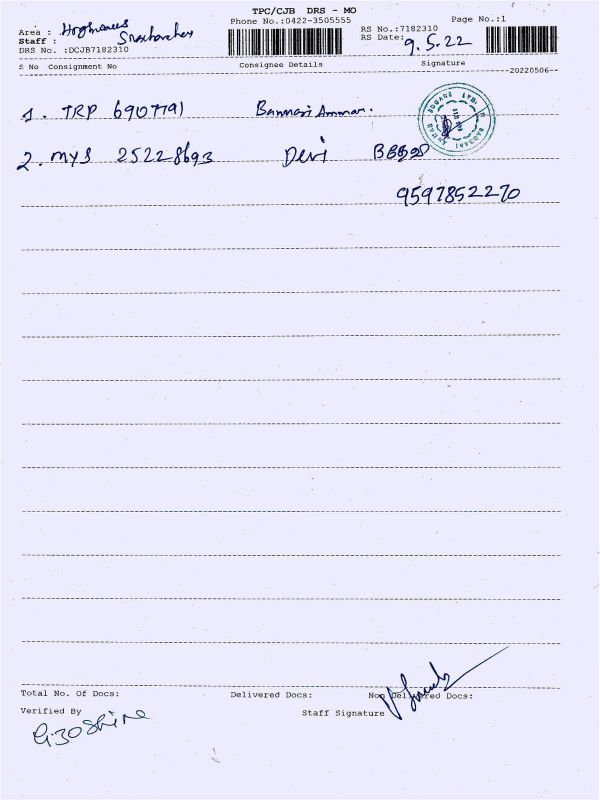 TPC/CJB DRS - MO
Phone No.:0422-3505555
Page No.:1
Area :
Staff :
RS No.:7182310
RS Date: 9.5.22
DRS No. :DCJB7182310
S No Consignment No Consignee Details Signature
20220506
1. TRP 6907791 Bannari Amman.
2. MYS 25228693 Devi
9597852270
Total No. Of Docs: Delivered Docs: Non Delivered Docs:
Verified By
Staff Signature